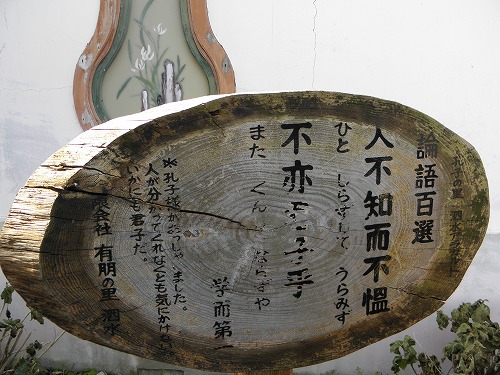 論語百選
人不知而不慍
ひと しらずして うらみず
不亦君子乎
また くんしならずや
学而第一
孔子様がおっしゃいました。
人が分かってくれなくとも気にかけない
いかにも君子だ。
会社 有明の里 泗水